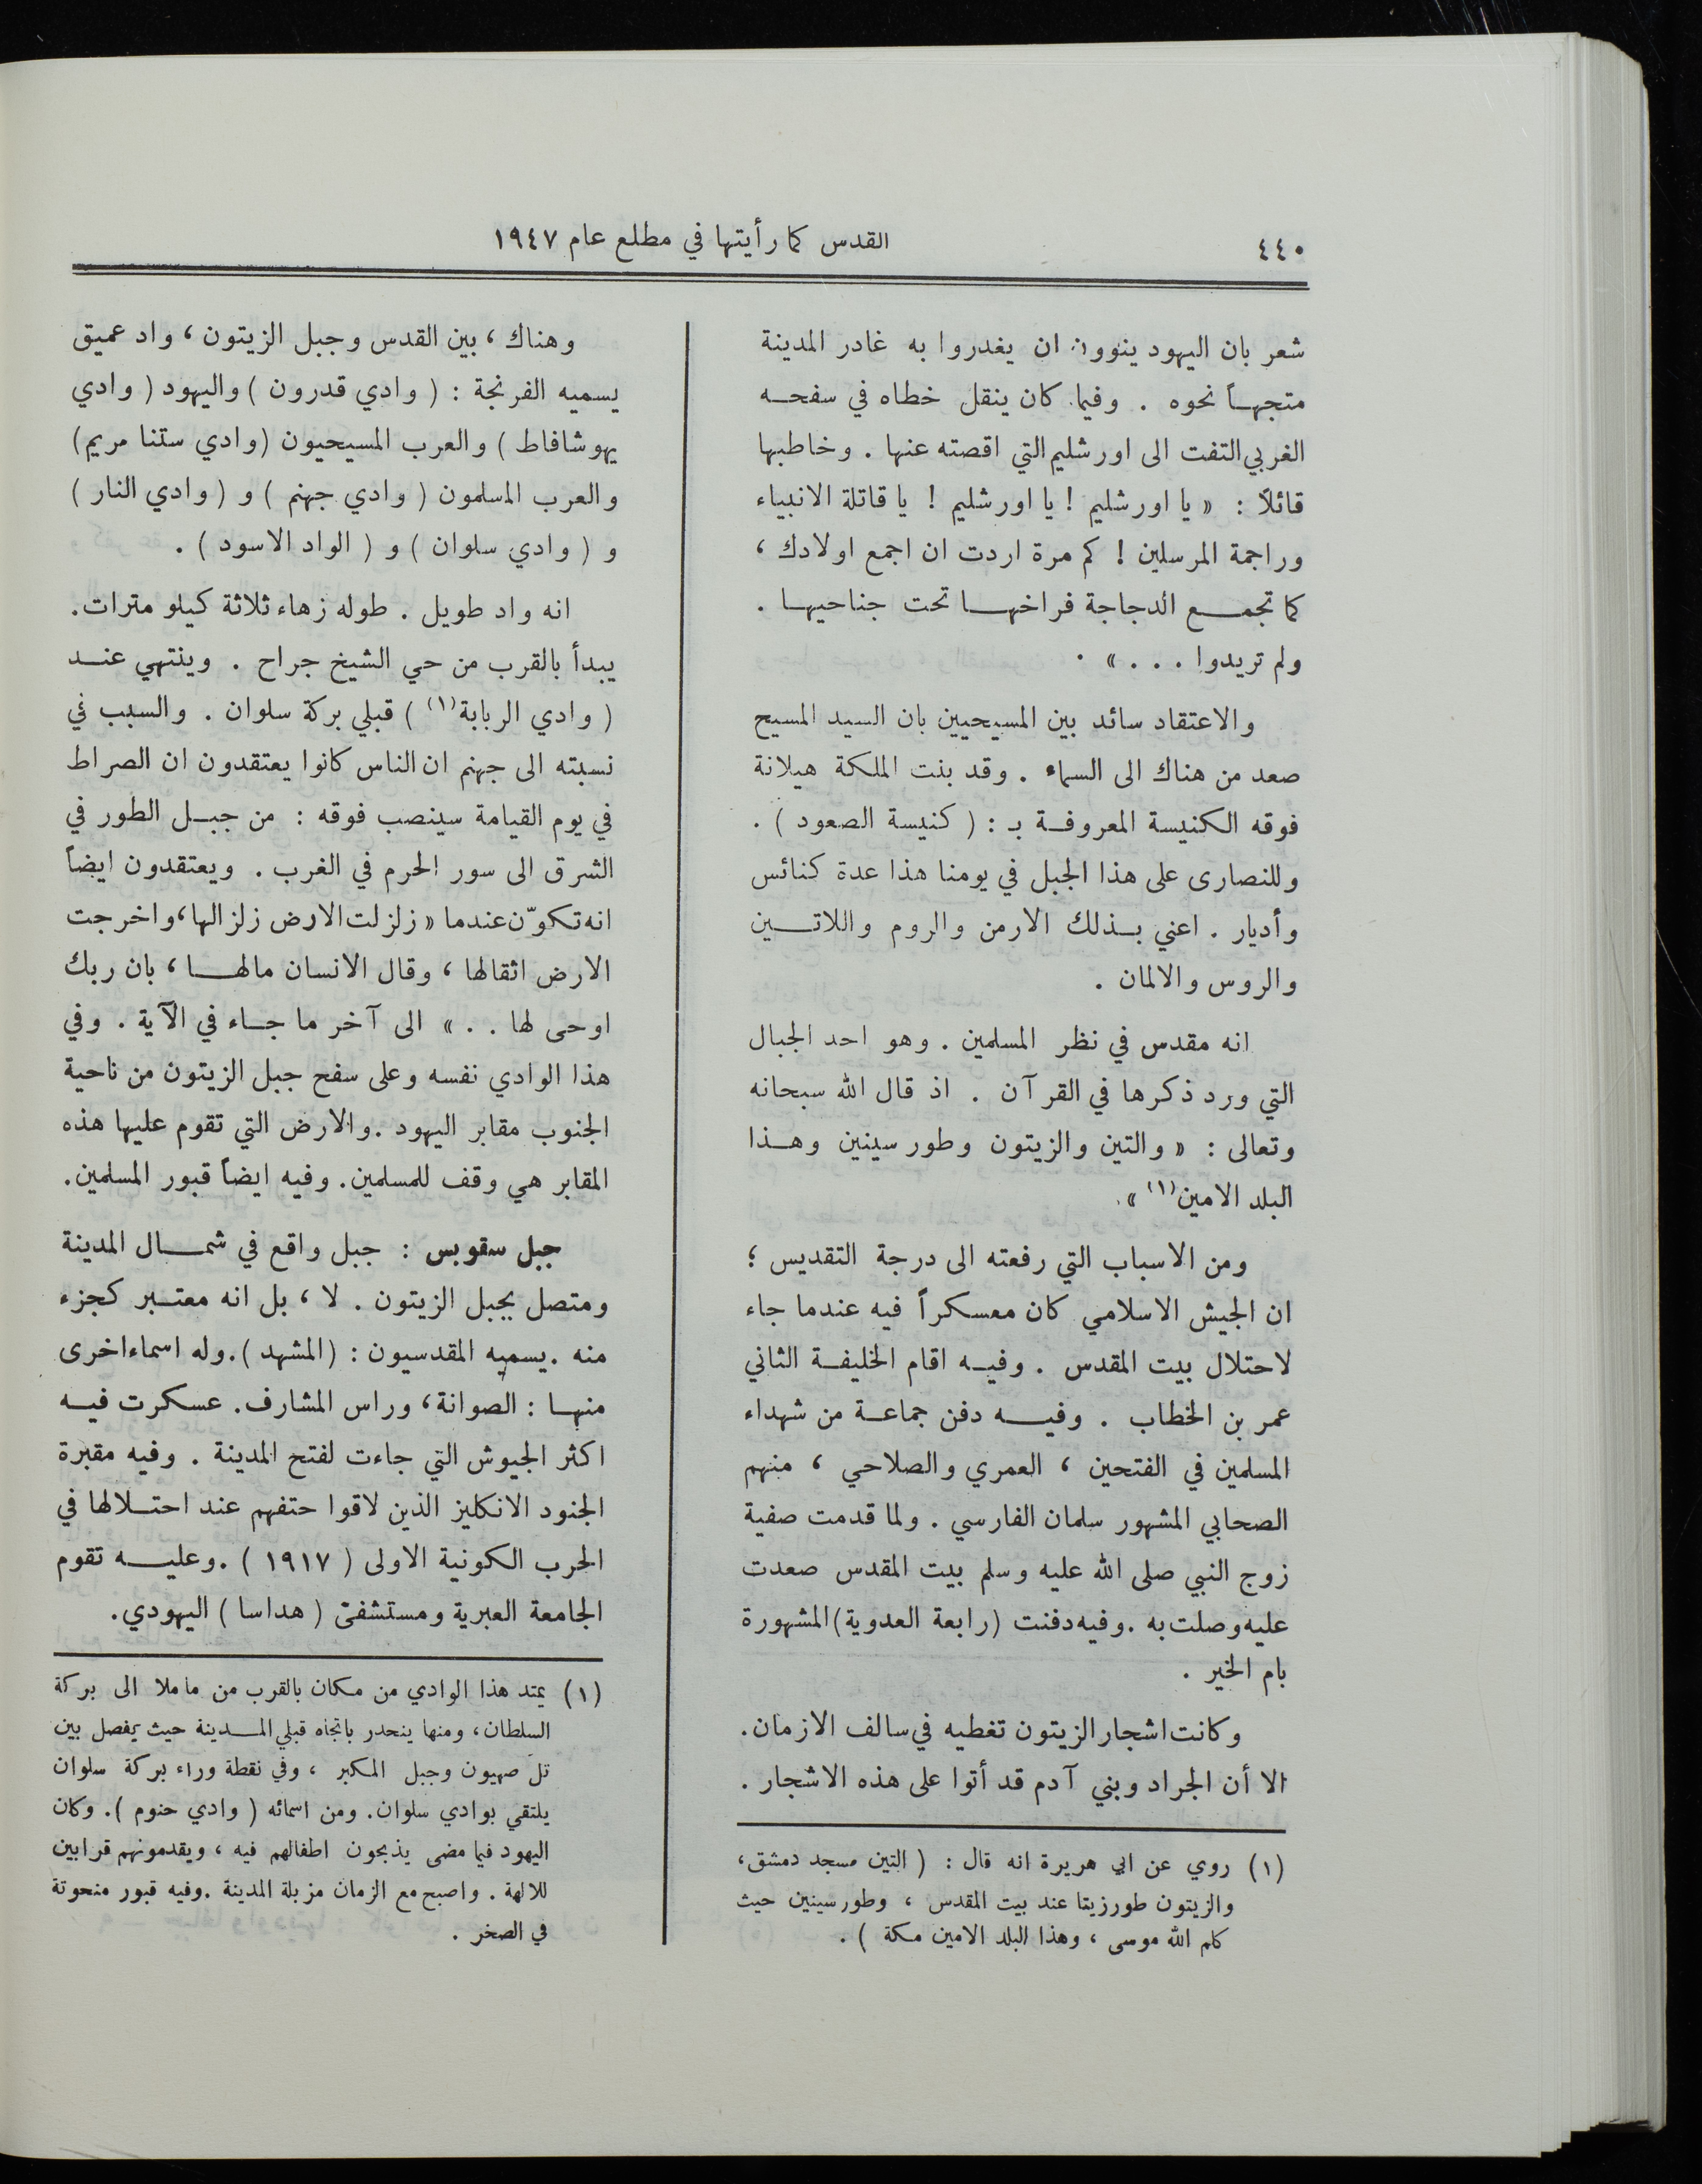 ٤٤٠
القدس كما رأيتها في مطلع عام ١٩٤٧
شعر بان اليهود ينوون ان يغدروا به غادر المدينة
متجهاً نحوه . وفيما كان ينقل خطاه في سفحه
الغربي التفت الى اورشليم التي اقصته عنها . وخاطبها
قائلاً : « يا اورشليم ! يا اورشليم ! يا قاتلة الانبياء
وراجمة المرسلين ! كم مرة اردت ان اجمع اولادك ،
كما تجمع الدجاجة فراخها تحت جناحيها .
ولم تريدوا . . . » .
والاعتقاد سائد بين المسيحيين بان السيد المسيح
صعد من هناك الى السماء . وقد بنت الملكة هيلانة
فوقه الكنيسة المعروفة بـ : ( كنيسة الصعود ) .
وللنصارى على هذا الجبل في يومنا هذا عدة كنائس
وأديار . اعني بذلك الارمن والروم واللاتين
والروس والالمان .
انه مقدس في نظر المسلمين . وهو احد الجبال
التي ورد ذكرها في القرآن . اذ قال الله سبحانه
وتعالى : « والتين والزيتون وطور سينين وهذا
البلد الامين(١) ».
ومن الاسباب التي رفعته الى درجة التقديس ؛
ان الجيش الاسلامي كان معسكراً فيه عندما جاء
لاحتلال بيت المقدس . وفيه اقام الخليفة الثاني
عمر بن الخطاب . وفيه دفن جماعة من شهداء
المسلمين في الفتحين ، العمري والصلاحي ، منهم
الصحابي المشهور سلمان الفارسي . ولما قدمت صفية
زوج النبي صلى الله عليه وسلم بيت المقدس صعدت
عليه وصلت به .وفيه دفنت (رابعة العدوية) المشهورة
بام الخير .
وكانت اشجار الزيتون تغطيه في سالف الازمان.
الا أن الجراد وبني آدم قد أتوا على هذه الاشجار .
(١) روي عن ابي هريرة انه قال : ( التين مسجد دمشق،
والزيتون طورزيتا عند بيت المقدس ، وطور سينين حيث
كلم الله موسى ، وهذا البلد الامين مكة ) .
وهناك ، بين القدس وجبل الزيتون ، واد عميق
يسميه الفرنجة : ( وادي قدرون ) واليهود ( وادي
يهوشافاط ) والعرب المسيحيون (وادي ستنا مريم)
والعرب المسلمون ( وادي جهنم ) و ( وادي النار )
و ( وادي سلوان ) و ( الواد الاسود ) .
انه واد طويل . طوله زهاء ثلاثة كيلو مترات.
يبدأ بالقرب من حي الشيخ جراح . وينتهي عند
( وادي الربابة(١) ) قبلي بركة سلوان . والسبب في
نسبته الى جهنم ان الناس كانوا يعتقدون ان الصراط
في يوم القيامة سينصب فوقه : من جبل الطور في
الشرق الى سور الحرم في الغرب . ويعتقدون ايضاً
انه تكوّن عندما « زلزلت الارض زلزالها، واخرجت
الارض اثقالها ، وقال الانسان مالها ، بان ربك
اوحى لها . . » الى آخر ما جاء في الآية . وفي
هذا الوادي نفسه وعلى سفح جبل الزيتون من ناحية
الجنوب مقابر اليهود .والارض التي تقوم عليها هذه
المقابر هي وقف للمسلمين. وفيه ايضاً قبور المسلمين.
جبل سقوبس : جبل واقع في شمال المدينة
ومتصل بجبل الزيتون . لا ، بل انه معتبر كجزء
منه .يسميه المقدسيون : (المشهد ).وله اسماء اخرى
منها : الصوانة، وراس المشارف. عسكرت فيه
اكثر الجيوش التي جاءت لفتح المدينة . وفيه مقبرة
الجنود الانكليز الذين لاقوا حتفهم عند احتلالها في
الحرب الكونية الاولى ( ١٩١٧ ) .وعليه تقوم
الجامعة العبرية ومستشفى ( هداسا ) اليهودي.
(١) يمتد هذا الوادي من مكان بالقرب من ماملا الى بركة
السلطان، ومنها ينحدر باتجاه قبلي المدينة حيث يفصل بين
تل صهيون وجبل المكبر ، وفي نقطة وراء بركة سلوان
يلتقي بوادي سلوان. ومن اسمائه ( وادي حنوم ). وكان
اليهود فيما مضى يذبحون اطفالهم فيه ، ويقدمونهم قرابين
للالهة . واصبح مع الزمان مزبلة المدينة .وفيه قبور منحوتة
في الصخر .